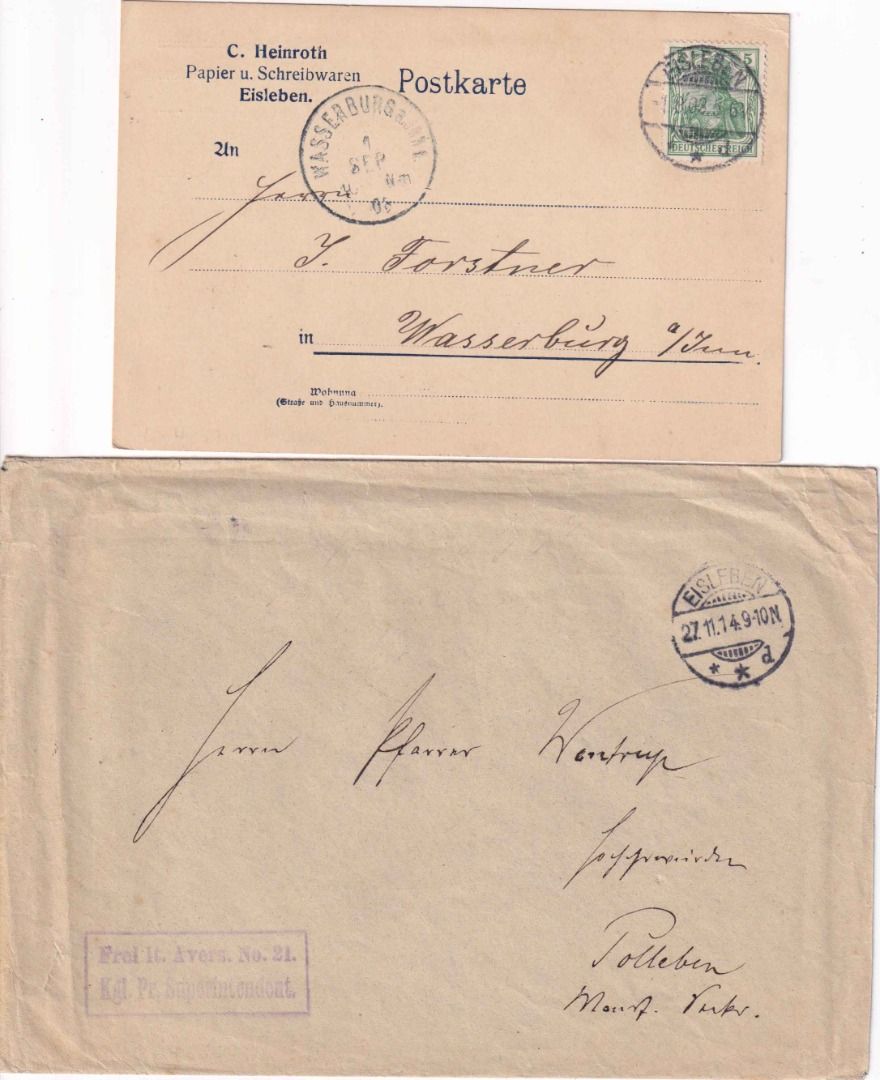 C. Heinroth
Papier u. Schreibwaren
Eisleben.
Postkarte
EISLEBEN
5
DEUTSCHES REICH
* d
WASSERBURG a. INN.
1
SEP
Nm
An
Herrn
J. Forstner
in Wasserburg a/Inn.
Wohnung
(Straße und Hausnummer).
EISLEBEN
27.11.14.9-10N.
* * d
Herrn Pfarrer Wentrup
Hochehrwürden
Polleben
Mansf. Seekr.
Frei lt. Avers. No. 21.
Kgl. Pr. Superintendent.